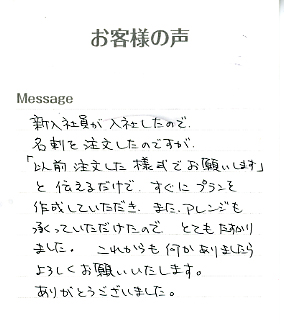 お客様の声
Message
新入社員が入社したので、
名刺を注文したのですが、
「以前注文した様式でお願いします」
と伝えるだけで、すぐにプランを
作成していただき、また、アレンジも
承っていただけたので とてもたすかり
ました。 これからも何かありましたら
よろしくお願いいたします。
ありがとうございました。